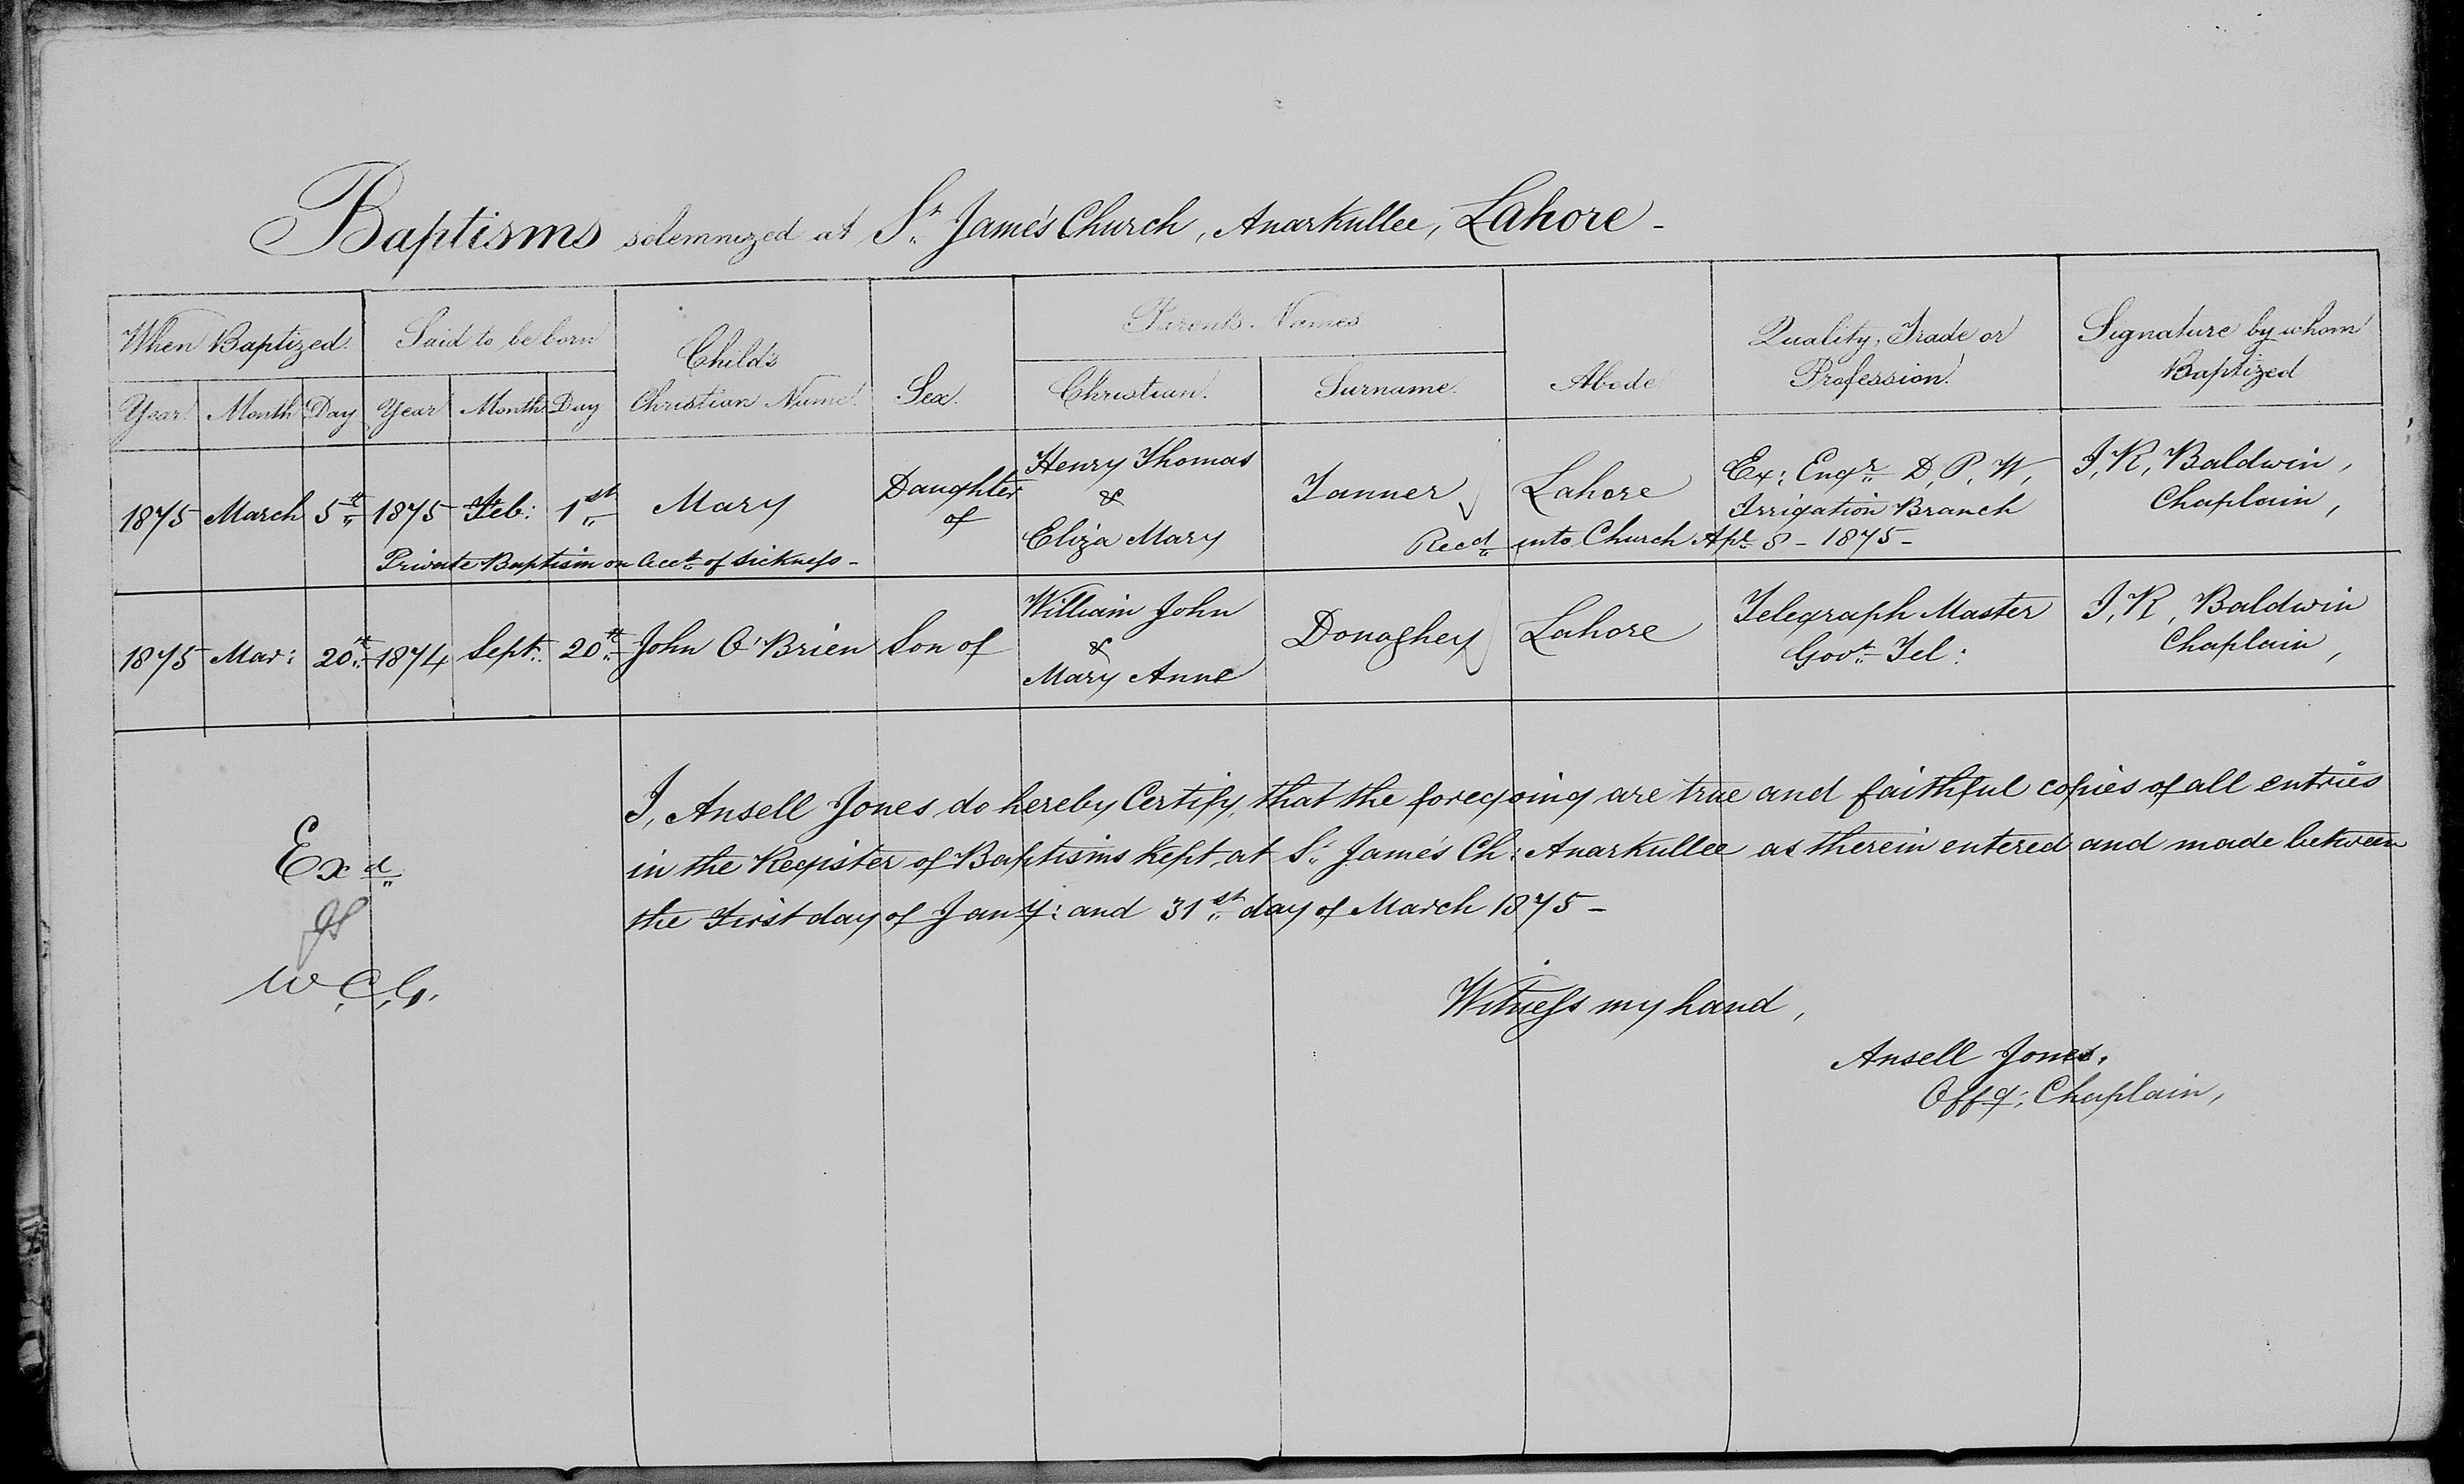 Baptisms solemnized at St. James's Church, Anarkullee, Lahore -
When Baptized. Said to be born Child's Christian Name. Sex. Parents Names Abode Quality, Trade or Profession. Signature by whom Baptized
Year. Month Day Year Month Day Christian. Surname.
1875 March 5th 1875 Feb: 1st Mary Daughter of Henry Thomas & Eliza Mary Tanner Lahore Ex: Engr D, P, W, Irrigation Branch J, R, Baldwin, Chaplain,
Private Baptism on Acct of sickness - Recd into Church Apl 8 - 1875 -
1875 Mar: 20th 1874 Sept: 20th John O'Brien Son of William John & Mary Anne Donaghey Lahore Telegraph Master Govt Tel: J, R, Baldwin Chaplain,
I, Ansell Jones, do hereby Certify, that the foregoing are true and faithful copies of all entries
in the Register of Baptisms kept at St. James's Ch: Anarkullee as therein entered and made between
the First day of Jany: and 31st day of March 1875 -
Exd
W, C, G,
Witness my hand,
Ansell Jones,
Offg: Chaplain,